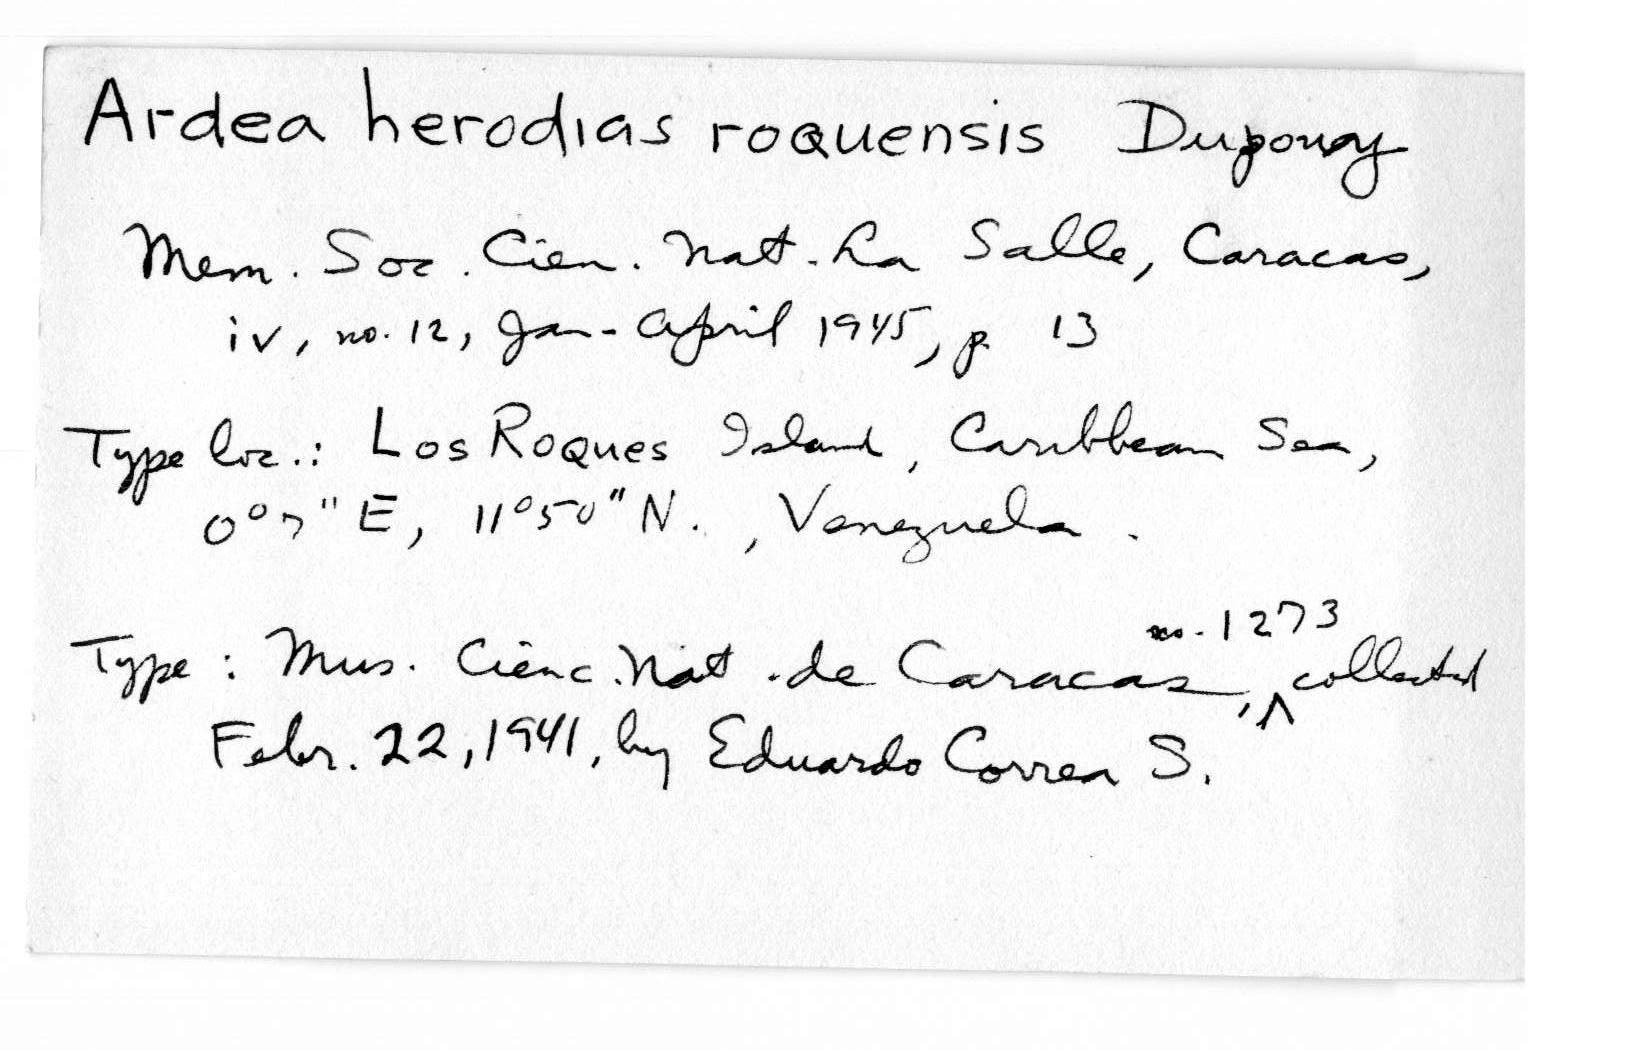 Ardea herodias roquensis Dupouy
Mem. Soc. Cien. Nat. La Salle, Caracas,
iv, no. 12, Jan-April 1945, p. 13
Type loc.: Los Roques Island, Caribbean Sea,
0°7" E, 11°50" N., Venezuela.
Type: Mus. Cienc. Nat. de Caracas, no. 1273 collected
Febr. 22, 1941, by Eduardo Correa S.